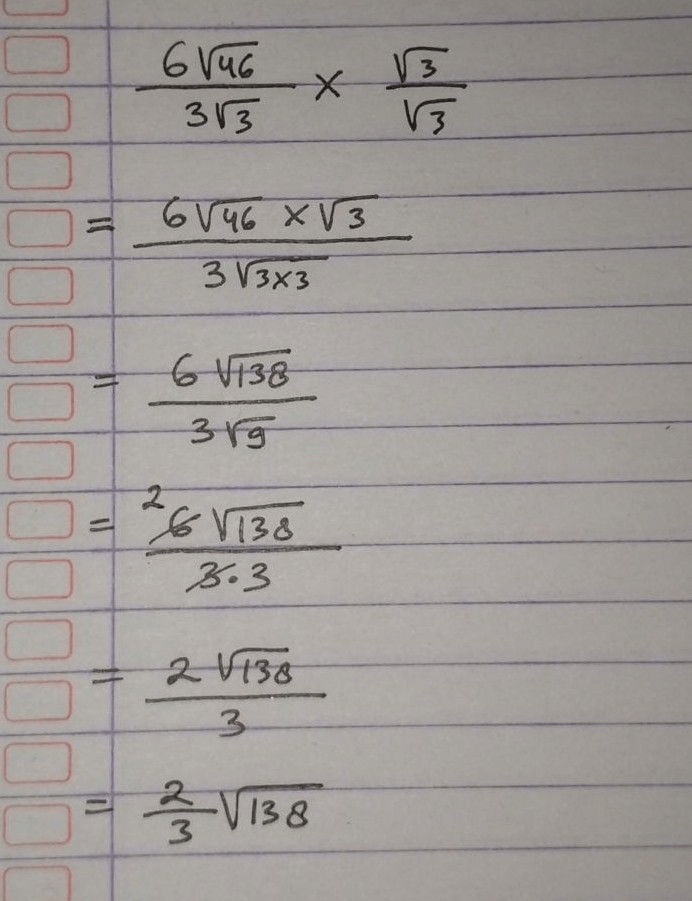 6√46/3√3 × √3/√3
= 6√46 × √3/3√3×3
= 6√138/3√9
= 2 6√138/3·3
= 2√138/3
= 2/3 √138